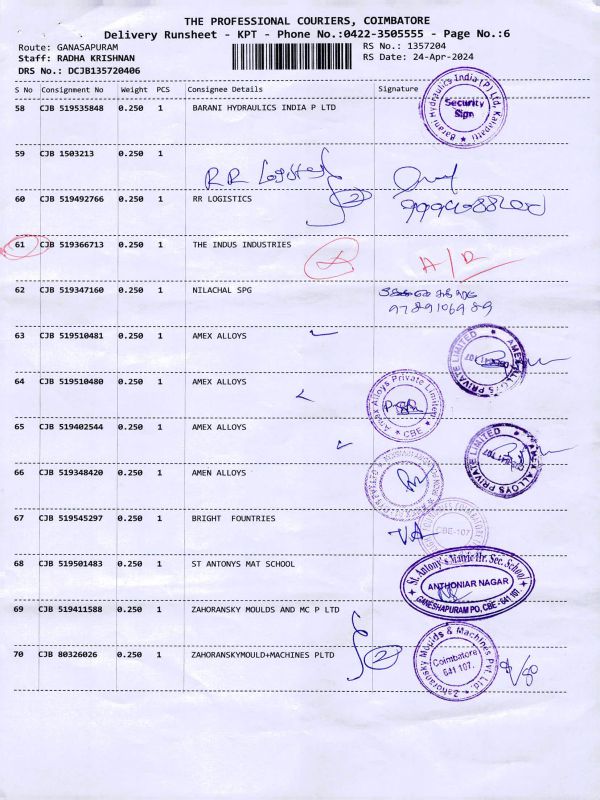 THE PROFESSIONAL COURIERS, COIMBATORE
Delivery Runsheet - KPT - Phone No.:0422-3505555 - Page No.:6
Route: GANASAPURAM
RS No.: 1357204
Staff: RADHA KRISHNAN
RS Date: 24-Apr-2024
DRS No.: DCJB135720406
S No Consignment No Weight PCS Consignee Details Signature
58 CJB 519535848 0.250 1 BARANI HYDRAULICS INDIA P LTD
Barani Hydraulics India (P) Ltd, Kalapatti
Security
Sign
59 CJB 1503213 0.250 1
RR Logistics
60 CJB 519492766 0.250 1 RR LOGISTICS
2
61 CJB 519366713 0.250 1 THE INDUS INDUSTRIES
A/R
62 CJB 519347160 0.250 1 NILACHAL SPG
9789106989
63 CJB 519510481 0.250 1 AMEX ALLOYS
AMEX ALLOYS PRIVATE LIMITED
64 CJB 519510480 0.250 1 AMEX ALLOYS
Amex Alloys Private Limited
CBE
65 CJB 519402544 0.250 1 AMEX ALLOYS
AMEX ALLOYS PRIVATE LIMITED
66 CJB 519348420 0.250 1 AMEN ALLOYS
67 CJB 519545297 0.250 1 BRIGHT FOUNTRIES
CBE-107
68 CJB 519501483 0.250 1 ST ANTONYS MAT SCHOOL
St. Antony's Matric Hr. Sec. School
ANTHONIAR NAGAR
GANESHAPURAM PO, CBE - 641 107.
69 CJB 519411588 0.250 1 ZAHORANSKY MOULDS AND MC P LTD
70 CJB 80326026 0.250 1 ZAHORANSKYMOULD+MACHINES PLTD
2
Zahoransky Moulds & Machines Pvt. Ltd.
Coimbatore
641 107.